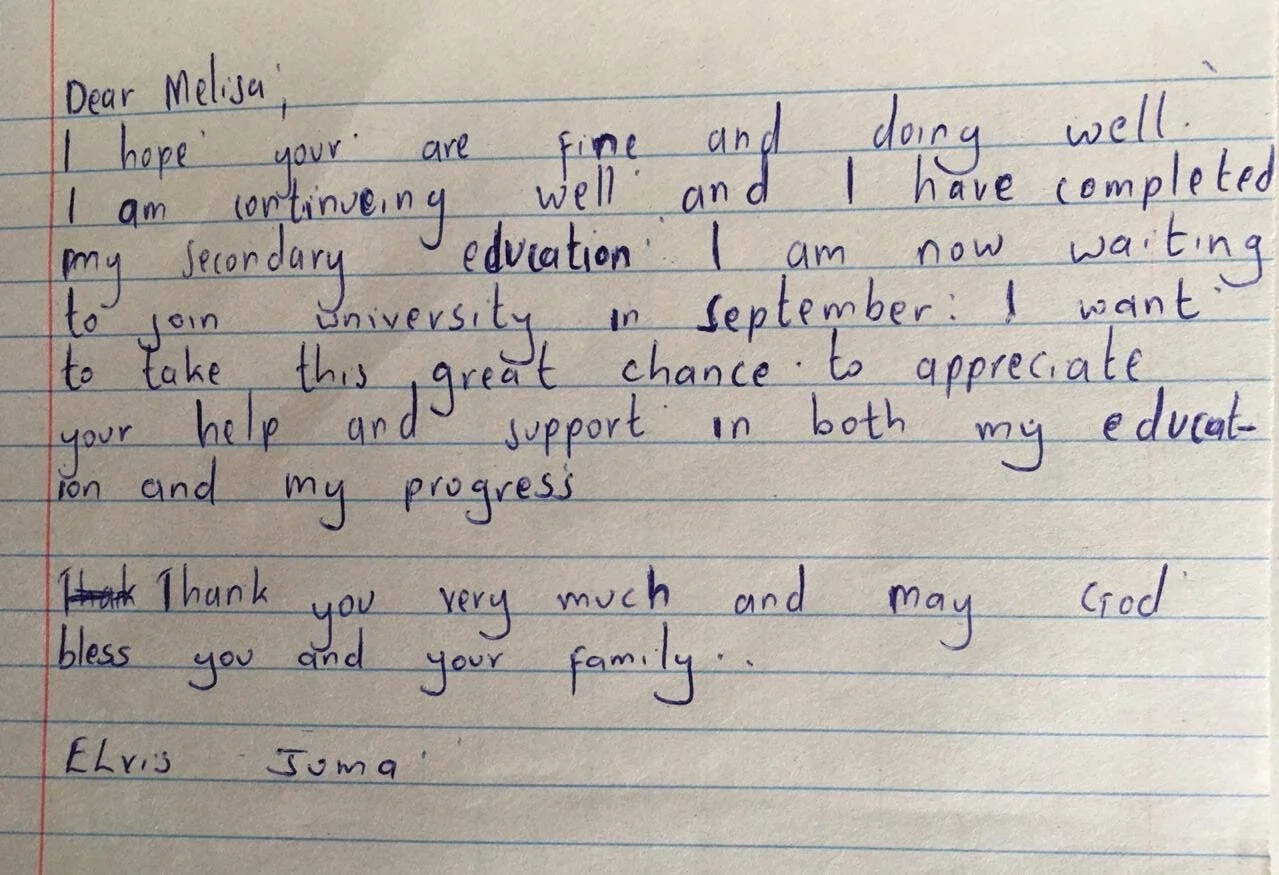 Dear Melisa,
I hope your are fine and doing well.
I am continueing well and I have completed
my secondary education. I am now waiting
to join university in September. I want
to take this great chance to appreciate
your help and support in both my educat-
ion and my progress
Thank you very much and may God
bless you and your family..
ELvis Juma